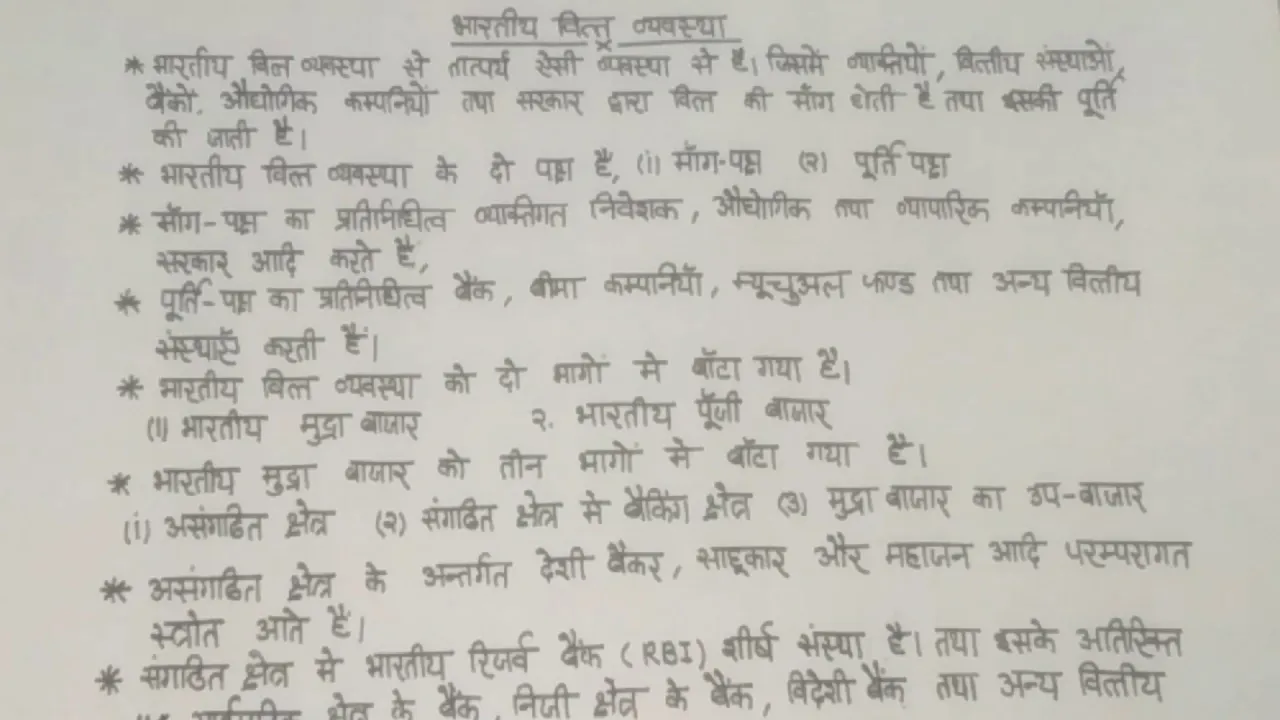 भारतीय वित्त व्यवस्था
* भारतीय वित्त व्यवस्था से तात्पर्य ऐसी व्यवस्था से है। जिसमें व्यक्तियों, वित्तीय संस्थाओं,
बैंकों, औद्योगिक कम्पनियों तथा सरकार द्वारा वित्त की माँग होती है तथा इसकी पूर्ति
की जाती है।
* भारतीय वित्त व्यवस्था के दो पक्ष है, (i) माँग-पक्ष (२) पूर्ति पक्ष
* माँग-पक्ष का प्रतिनिधित्व व्यक्तिगत निवेशक, औद्योगिक तथा व्यापारिक कम्पनियाँ,
सरकार आदि करते है,
* पूर्ति-पक्ष का प्रतिनिधित्व बैंक, बीमा कम्पनियाँ, म्यूचुअल फण्ड तथा अन्य वित्तीय
संस्थाएँ करती हैं।
* भारतीय वित्त व्यवस्था को दो भागों मे बाँटा गया है।
(i) भारतीय मुद्रा बाजार २. भारतीय पूँजी बाजार
* भारतीय मुद्रा बाजार को तीन भागों मे बाँटा गया है।
(i) असंगठित क्षेत्र (२) संगठित क्षेत्र मे बैकिंग क्षेत्र (३) मुद्रा बाजार का उप-बाजार
* असंगठित क्षेत्र के अन्तर्गत देशी बैंकर, साहूकार और महाजन आदि परम्परागत
स्त्रोत आते हैं।
* संगठित क्षेत्र मे भारतीय रिजर्व बैंक (RBI) शीर्ष संस्था है। तथा इसके अतिरिक्त
क्षेत्र के बैंक, निजी क्षेत्र के बैंक, विदेशी बैंक तथा अन्य वित्तीय